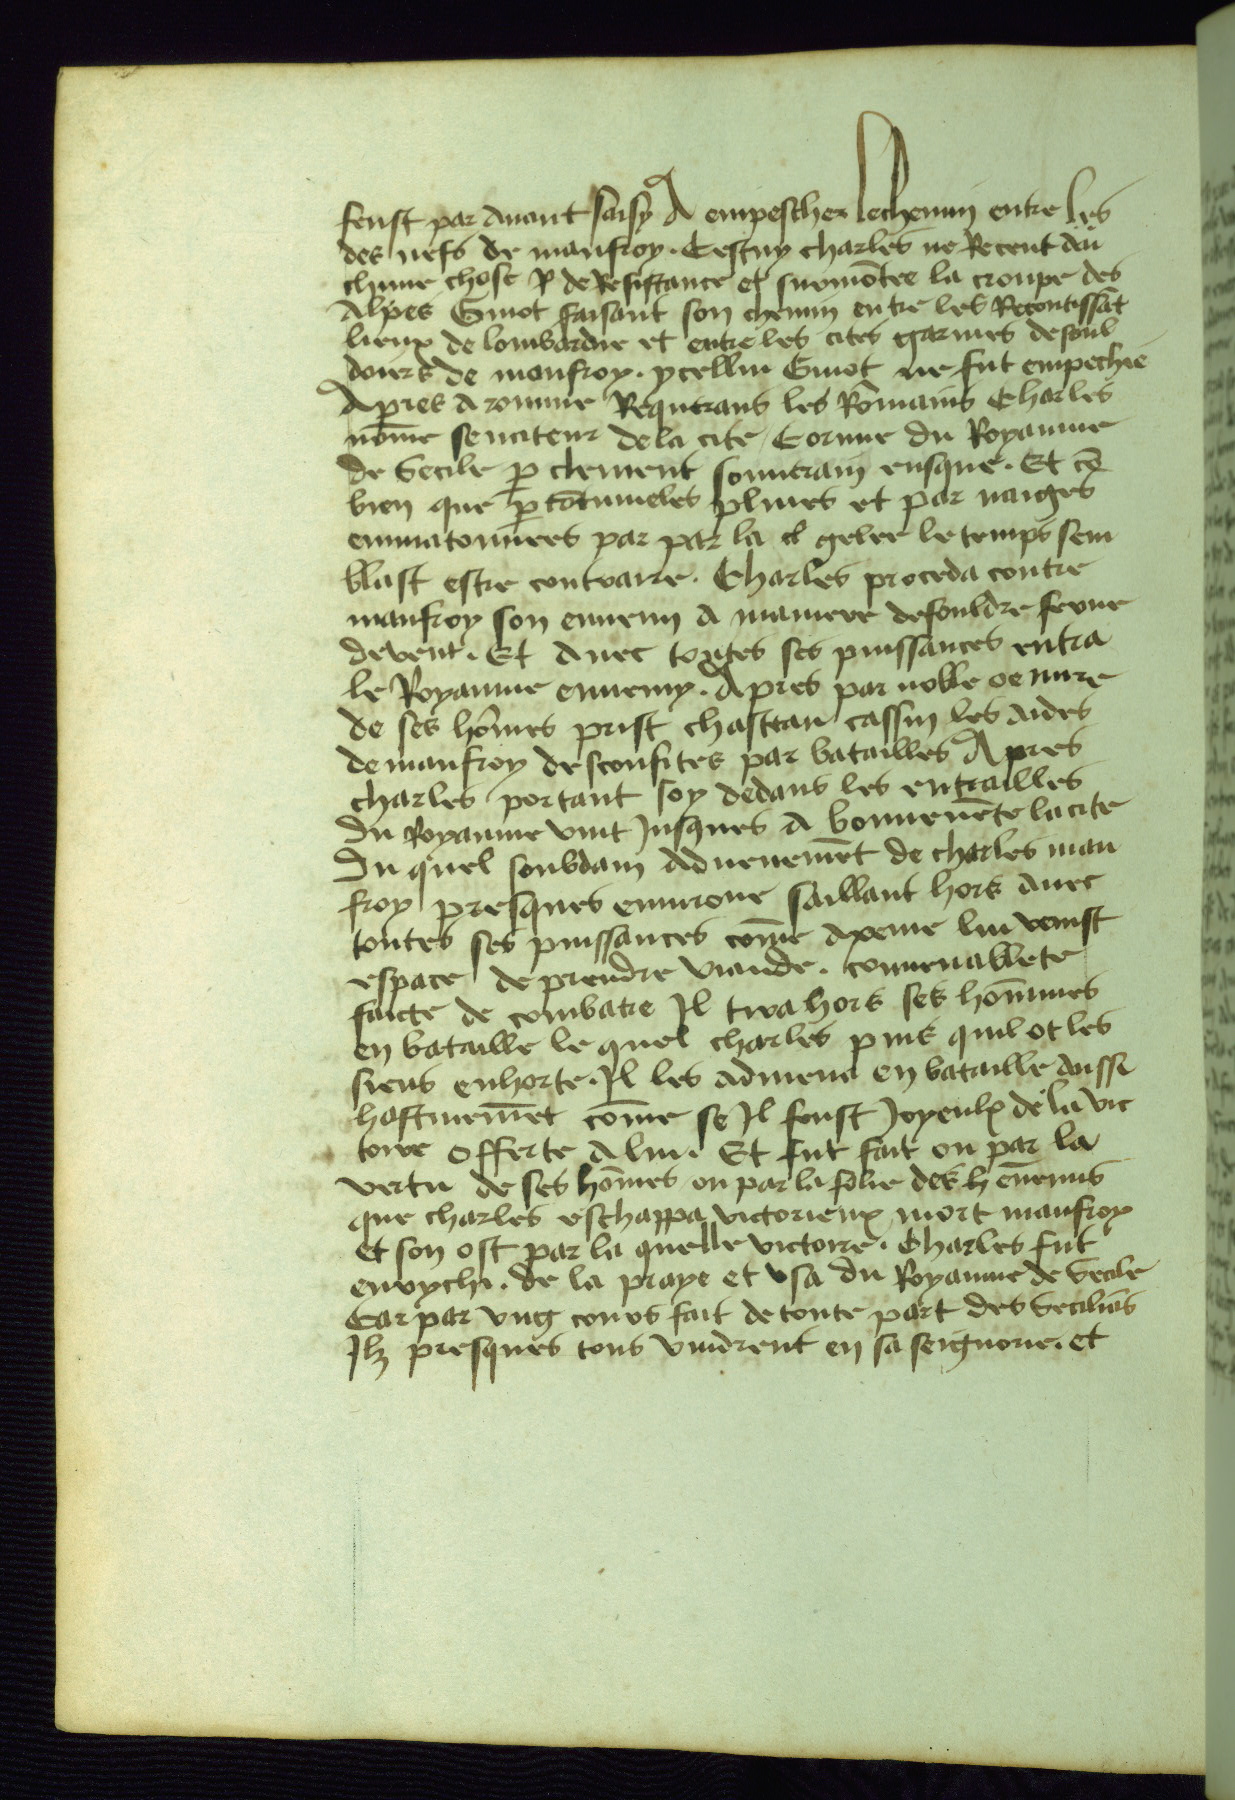 feust par avant saisy A empescher lechemin entre les
des nefs de manfroy. Cestuy charles ne Receut dau
chune chose p de Resistance et surmōtee la croupe des
Alpes Guiot faisant son chemin entre les Recontissāt
lieux de lombardie et entre les cites garnies desoul
doiers de manfroy. ycellui Guiot ne fut empechie
Apres A romme Requerans les Rōmains Charles
nōme senateur dela cite Coronne du Royaume
de Secile p clement souuerain euesque. Et cō
bien que p cōtinueles pluies et par naiges
par par la et gelee le temps sem
blast estre contraire. Charles proceda contre
manfroy son ennemi A maniere defouldre ferue
devent. Et Auec toutes ses puissances entra
le Royaume ennemy. Apres par noble oeuure
de ses hōmes prist chasteau cassin les aides
de manfroy desconfites par batailles Apres
charles portant soy dedans les entrailles
Du Royaume vint Jusques A bonneuēte la cite
Du quel soubdain Aduenemēt de charles man
froy presques enuirone saillant hors auec
toutes ses puissances cōme Apeine lui venist
espace de prendre viande. conuenablete
faicte de combatre Il tira hors ses hōmmes
en bataille le quel charles puis quil ot les
siens enhorte. Il les admena en bataille Aussi
hastiuemēt cōme se Il feust Joyeulx de la vic
toire offerte A lui. Et fut fait ou par la
vertu de ses hōmes ou par la folie des hēnemis
que charles eschappa victorieux mort manfroy
et son ost par la quelle victoire. Charles fut
enrychi. de la praye et vsa du Royaume de Secile
Car par vng cours fait de toute part des Seciliās
Ilz presques tous vindrent en sa seignorie. et